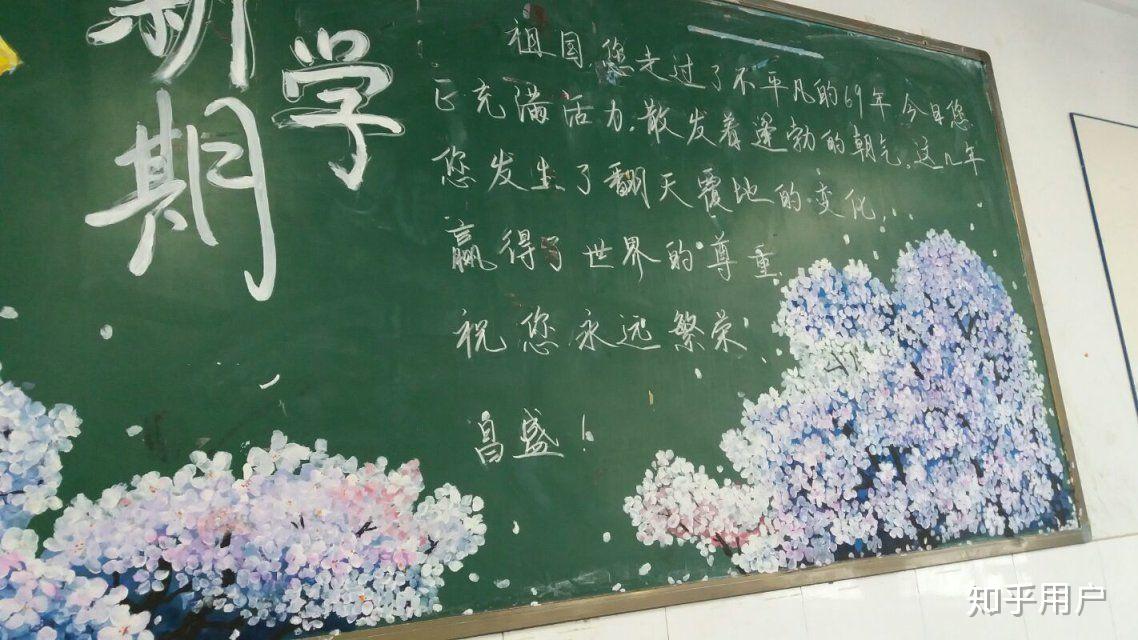 新
学
期
祖国,您走过了不平凡的69年今日您
正充满活力,散发着蓬勃的朝气,这几年
您发生了翻天覆地的变化...
赢得了世界的尊重
祝您永远繁荣!
昌盛!
知乎用户